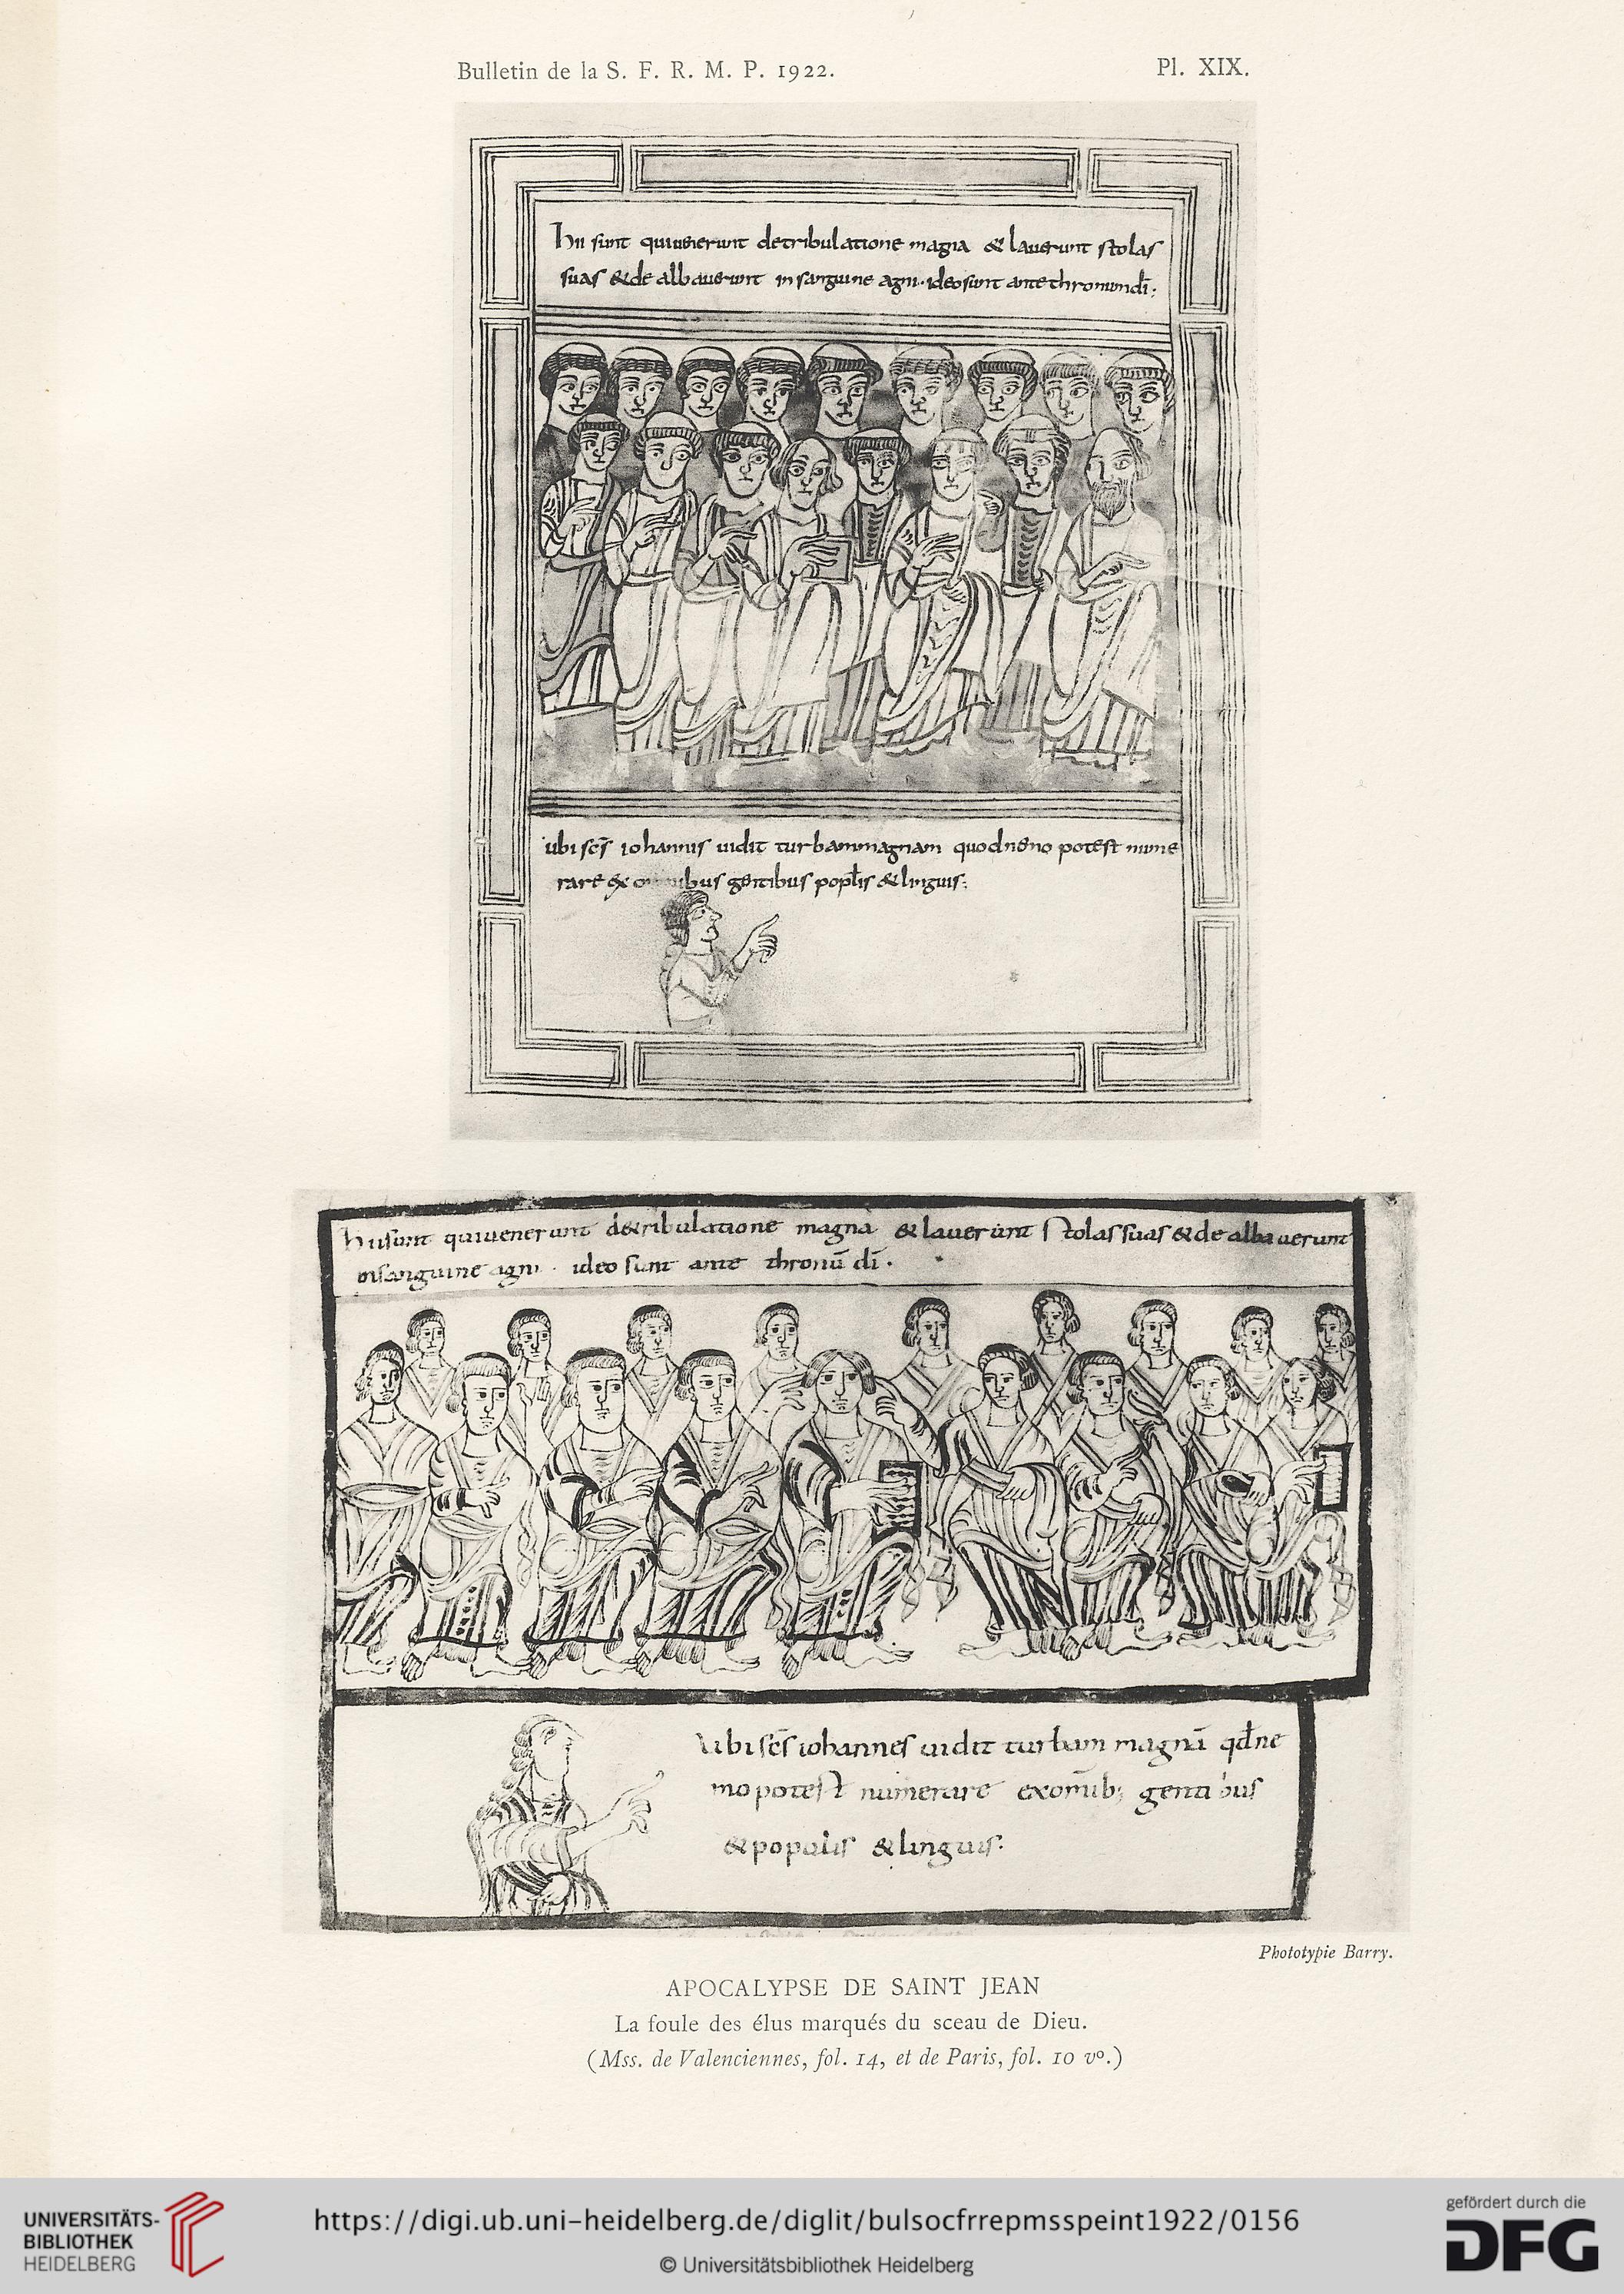 Bulletin de la S. F. R. M. P. 1922.
Pl. XIX.
hii sunt quiuenerunt detribulatione magna & lauerunt stolas
suas &de albauerunt insanguine agni. ideosunt antethronumdī;
ubi scs̄ iohannis uidit turbammagnam quodnēno potest nume
rare ex gentibus popl̄is &linguis;
hiisunt quiuenerunt d&ribulatione magna &lauerunt stolassuas &de albauerunt
insanguine agni. ideo sunt ante thronū dī.
Ubi scs̄ iohannes uidit turbam magnā qd̄ne
mopotest numerare exomīb; gentibus
&populis &linguis:
Phototypie Barry.
APOCALYPSE DE SAINT JEAN
La foule des élus marqués du sceau de Dieu.
(Mss. de Valenciennes, fol. 14, et de Paris, fol. 10 vo.)
UNIVERSITÄTS-
BIBLIOTHEK
HEIDELBERG
https://digi.ub.uni-heidelberg.de/diglit/bulsocfrrepmsspeint1922/0156
© Universitätsbibliothek Heidelberg
gefördert durch die
DFG